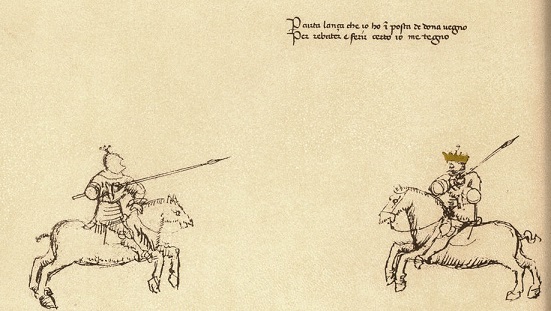 P curta lança che io ho ĩ posta de dona vegno
Per rebater e ferir certo io me tegno